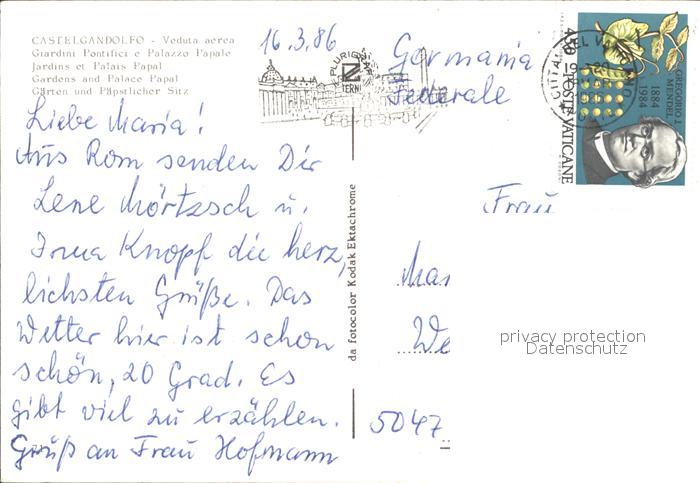 CASTELGANDOLFO - Veduta aerea
Giardini Pontifici e Palazzo Papale
Jardins et Palais Papal
Gardens and Palace Papal
Gärten und Päpstlicher Sitz
16.3.86
Liebe Maria!
Aus Rom senden Dir
Lene Mörtzsch u.
Irma Knopf die herz,
lichsten Grüße. Das
Wetter hier ist schon
schön, 20 Grad. Es
gibt viel zu erzählen.
Gruß an Frau Hofmann
da fotocolor Kodak Ektachrome
Germania
Federale
Frau
Mar
We
5047
450
POSTE VATICANE
GREGORIO J.
MENDEL
1884
1984
privacy protection
Datenschutz